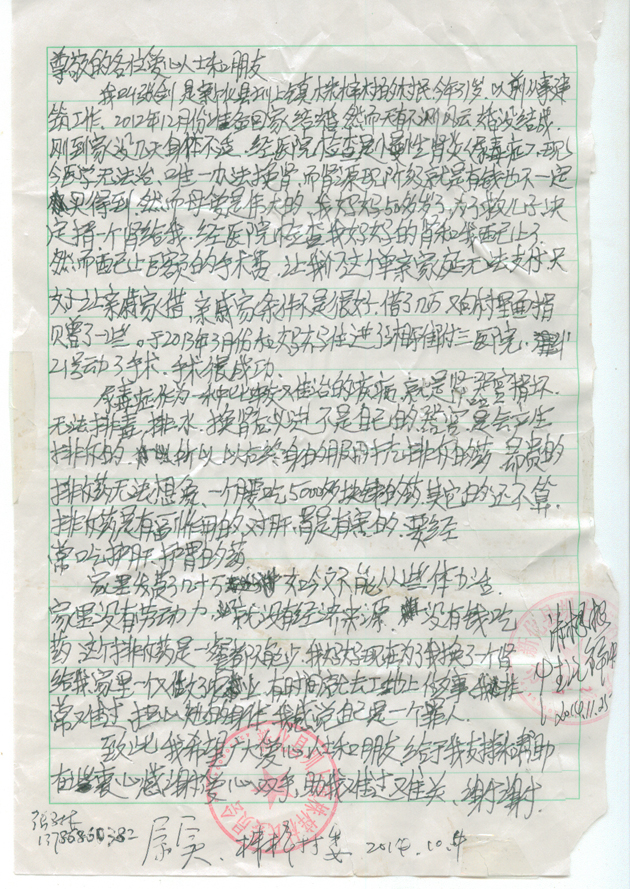 尊敬的各位爱心人士和朋友
我叫张剑 是新化县 镇 村的村民 今年31岁 以前从事建
筑工作, 2012年12月份 回家结婚 然而天有不测风云, 婚没结成
刚到家没几天身体不适, 经医院检查是慢性肾炎(尿毒症), 现
今医学无法治, 唯一办法换肾, 而肾源现阶段就是有钱也不一定
买得到, 然而母爱是伟大的, 我妈妈50多岁了, 为了救儿子决
定捐一个肾给我, 经医院检查我妈妈的肾和我配上了
然而配上 的手术费, 让我们这个单亲家庭无法支付, 只
好去亲戚家借, 亲戚家条件不是很好, 借了几万 又向村里面捐
了一些。于2013年3月份和妈妈去了住进了湘雅附三医院,
21号动了手术, 手术很成功.
尿毒症作为一种比较难治的疾病, 就是肾脏损坏,
无法排毒, 排水, 换肾 不是自己的, 脏会产生
排斥的 所以以后终身的服用抗排斥的药 昂贵的
排斥药无法想象, 一个月要吃5000多块钱的药, 其它的还不算,
排斥药是有副作用的, 对肝, 胃是有害的, 要经
常吃护肝, 护胃的药
家里发费了几十万 如今不能从事体力活.
家里没有劳动力 就没有经济来源 没有钱吃
药 这个排斥药是一餐都不能少, 我妈妈现在为了我换了一个肾
给我 家里一个人做农业, 有时间就去工地上做事, 我非
常难过, 我感觉自己是一个罪人.
致此, 我希望广大爱心人士和朋友给于我支持和帮助
在 衷心感谢 爱心双手, 助我度过难关, 谢谢.
13786860382
属实, 村委 2014.10.4
情况属实
2014.11.25